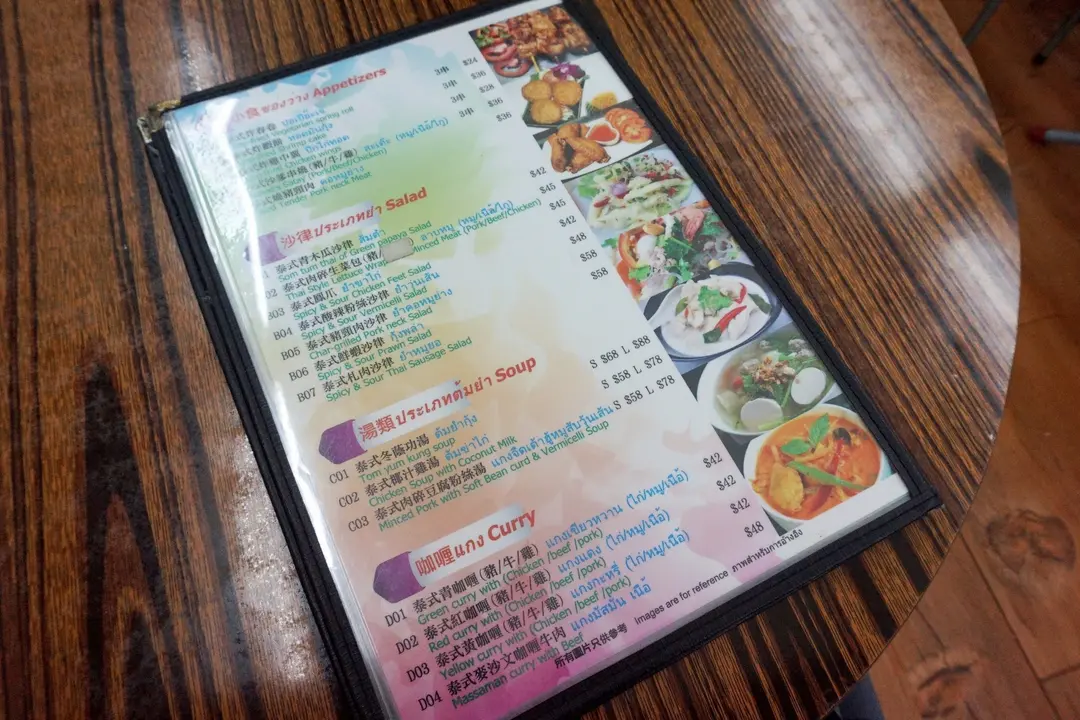 食ของว่าง Appetizers
式炸春卷 ปอเปี๊ยะ 3串 $24
Vegetarian spring roll
式炸蝦餅 ทอดมันกุ้ง $36
Shrimp cake
式炸雞中翼 ปีกไก่ทอด 3串 $28
Chicken wings
式沙爹串燒(豬/牛/雞) สะเต๊ะ (หมู/เนื้อ/ไก่) 3串 $36
Satay (Pork/Beef/Chicken)
式燒豬頸肉 คอหมูย่าง $36
Tender Pork neck Meat
沙律ประเภทยำ Salad
泰式青木瓜沙律 ส้มตำ $42
Som tum thai of Green papaya Salad
02 泰式肉碎生菜包(豬/ ลาบหมู (หมู/เนื้อ/ไก่) $45
Thai Style Lettuce Wrap Minced Meat (Pork/Beef/Chicken)
B03 泰式鳳爪 ยำขาไก่ $45
Spicy & Sour Chicken Feet Salad
B04 泰式酸辣粉絲沙律 ยำวุ้นเส้น $42
Spicy & Sour Vermicelli Salad
B05 泰式豬頸肉沙律 ยำคอหมูย่าง $48
Char-grilled Pork neck Salad
B06 泰式鮮蝦沙律 กุ้งพล่า $58
Spicy & Sour Prawn Salad
B07 泰式札肉沙律 ยำหมูยอ $58
Spicy & Sour Thai Sausage Salad
湯類ประเภทต้มยำ Soup
C01 泰式冬蔭功湯 ต้มยำกุ้ง S $68 L $88
Tom yum kung soup
C02 泰式椰汁雞湯 ต้มข่าไก่ S $58 L $78
Chicken Soup with Coconut Milk
C03 泰式肉碎豆腐粉絲湯 แกงจืดเต้าฮู้หมูสับวุ้นเส้น S $58 L $78
Minced Pork with Soft Bean curd & Vermicelli Soup
咖喱แกง Curry
D01 泰式青咖喱(豬/牛/雞) แกงเขียวหวาน (ไก่/หมู/เนื้อ) $42
Green curry with (Chicken /beef /pork)
D02 泰式紅咖喱(豬/牛/雞) แกงแดง (ไก่/หมู/เนื้อ) $42
Red curry with (Chicken /beef /pork)
D03 泰式黃咖喱(豬/牛/雞) แกงกะหรี่ (ไก่/หมู/เนื้อ) $42
Yellow curry with (Chicken /beef /pork)
D04 泰式麥沙文咖喱牛肉 แกงมัสมั่น เนื้อ $48
Massaman curry with Beef
所有圖片只供參考 Images are for reference ภาพสำหรับการอ้างอิง